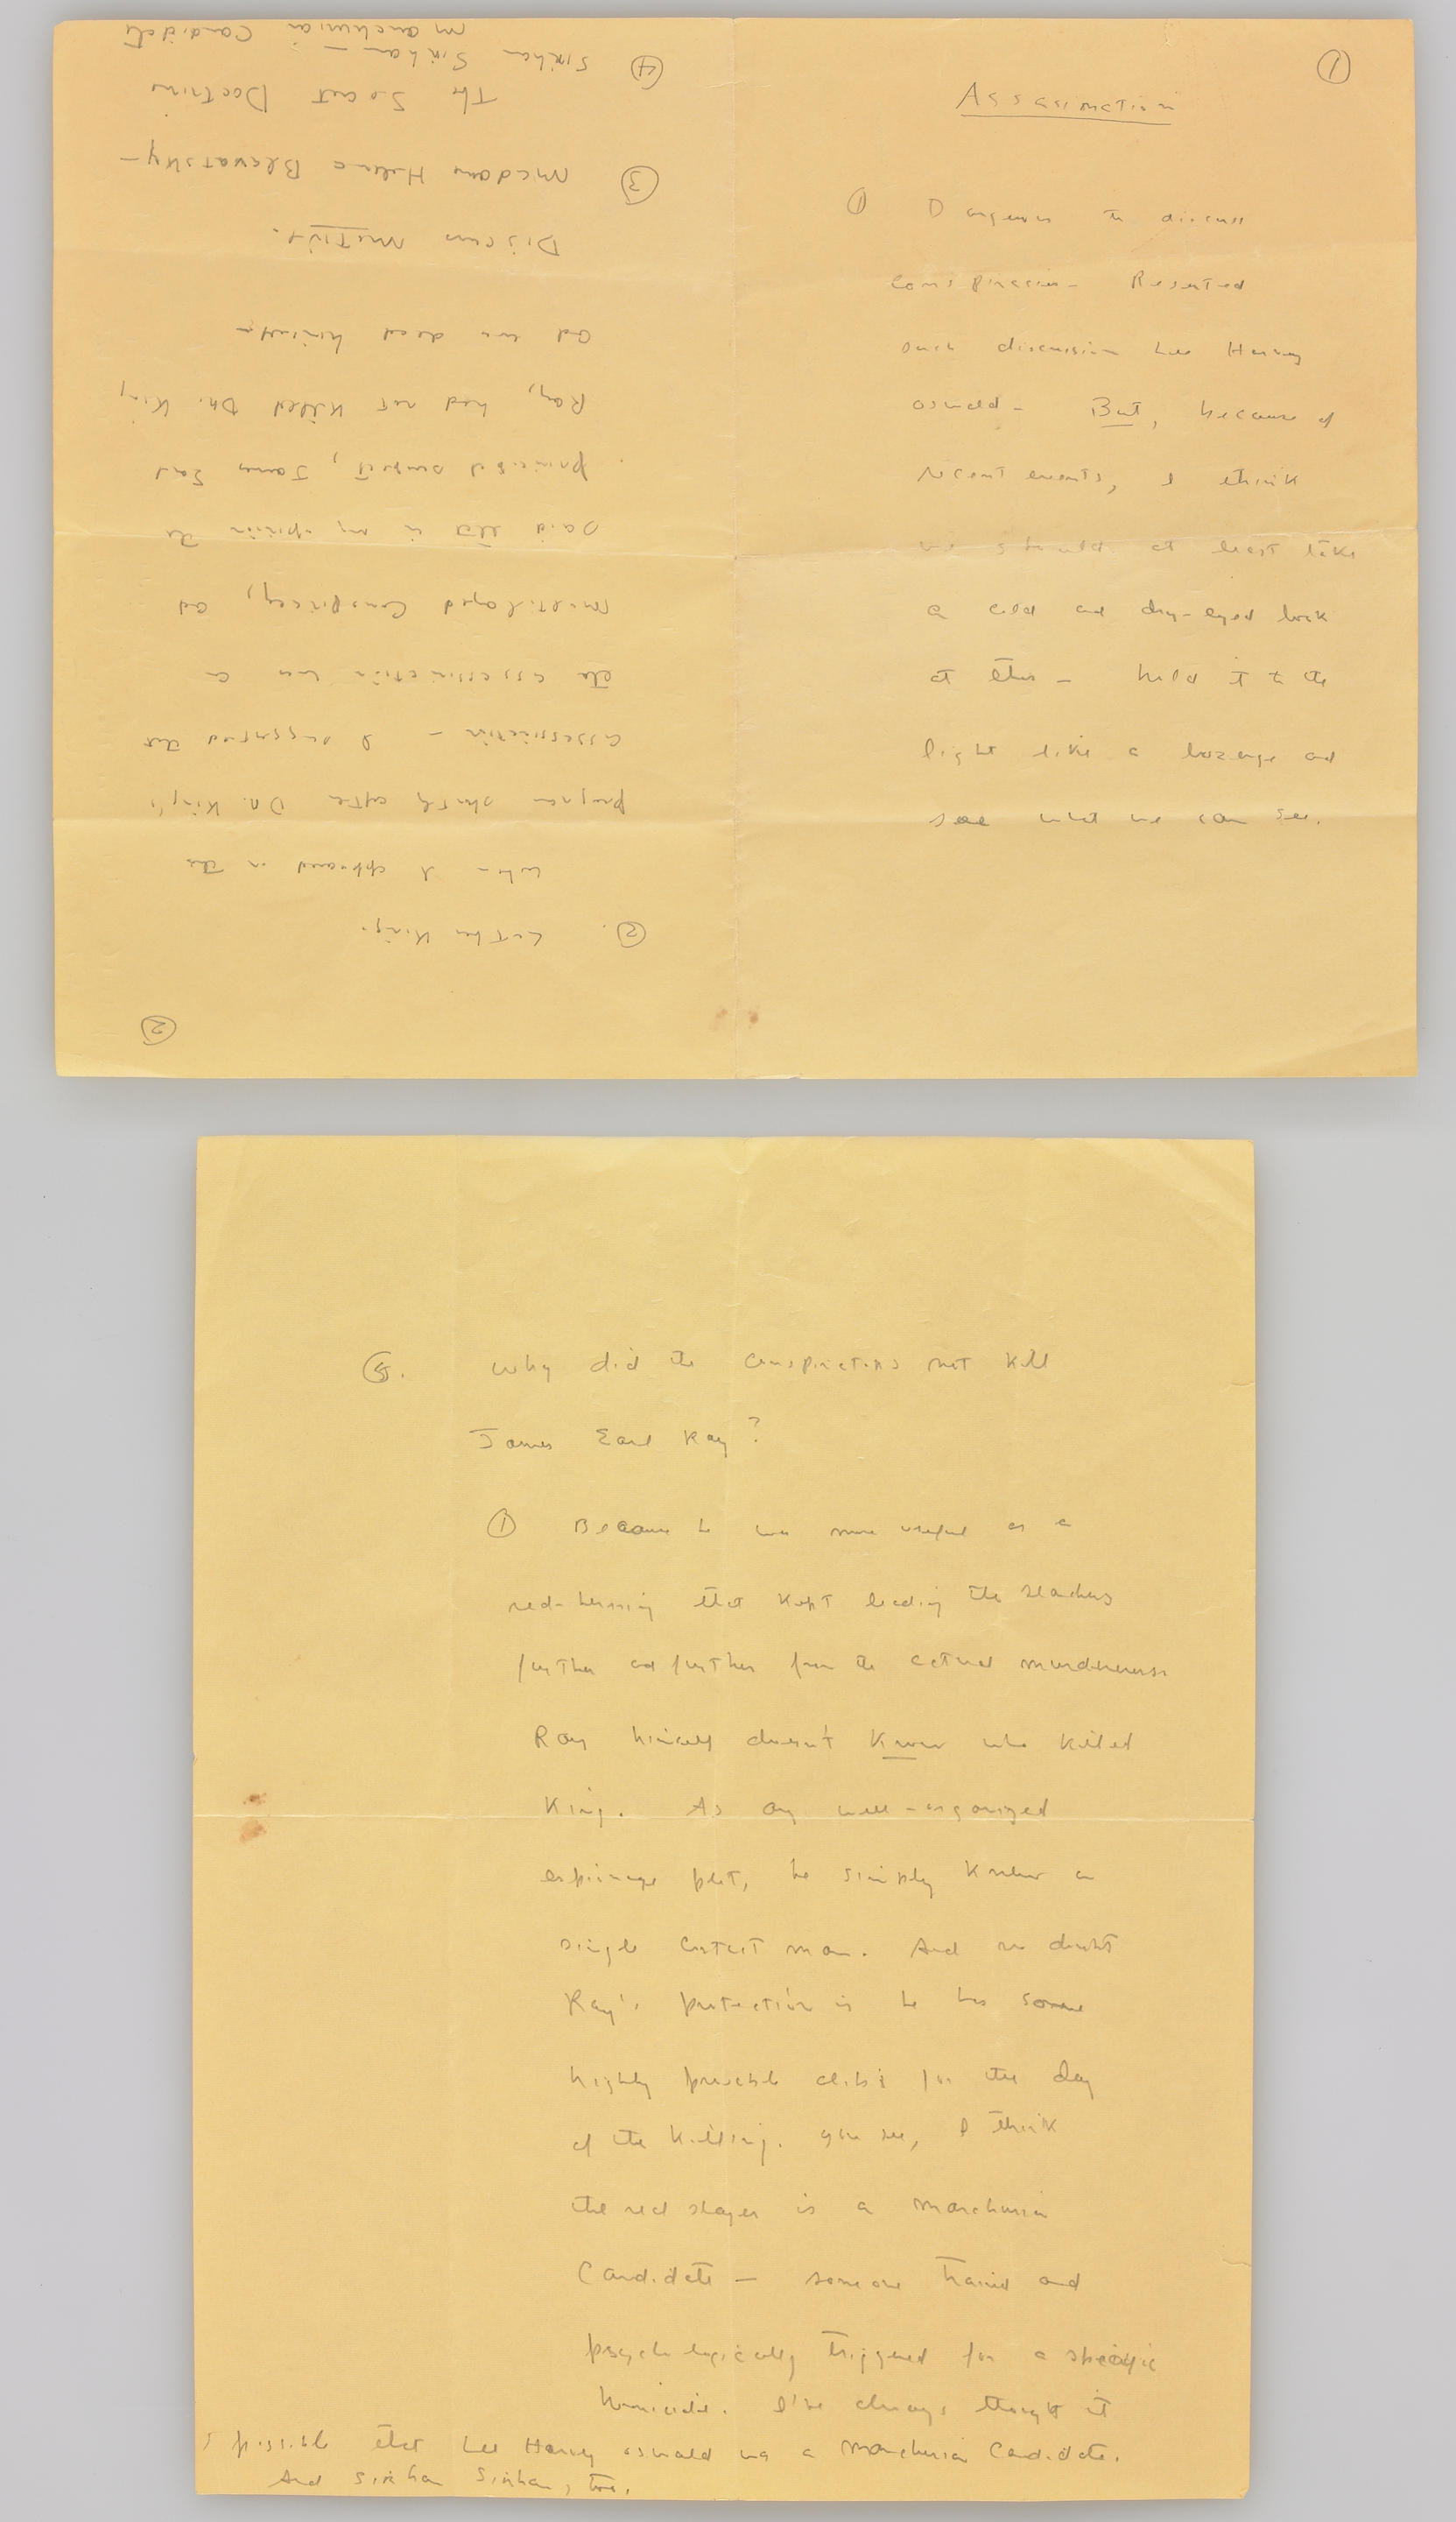 ①
Assasination
① Dangerous to discuss
conspiracies - Resented
such discussion Lee Harvey
Oswald - But, because of
recent events, I think
we should at least take
a cold and dry-eyed look
at this - hold it to the
light like a lozenge and
see what we can see.
②
②. Luther King.
When I appeared on the
program shortly after Dr. King's
assassination - I suggested that
the assassination was a
multileveled conspiracy, and
said that in my opinion the
principal suspect, James Earl
Ray, had not killed Dr. King
and was dead himself -
Discuss motive.
③ Madame Helena Blavatsky -
The Secret Doctrine
④ Sirhan Sirhan - a
Manchurian Candidate
⑤. Why did the conspirators not kill
James Earl Ray?
① Because he was more useful as a
red-herring that kept leading the searchers
further and further from the actual murderers.
Ray himself doesn't know who killed
King. As any well-organized
espionage plot, he simply knew a
single contact man. And no doubt
Ray's protection is he has some
highly provable alibi for the day
of the killing. You see, I think
the red slayer is a Manchurian
Candidate - someone trained and
psychologically triggered for a specific
homicide. I've always thought it
is possible that Lee Harvey Oswald was a Manchurian Candidate.
And Sirhan Sirhan, too.